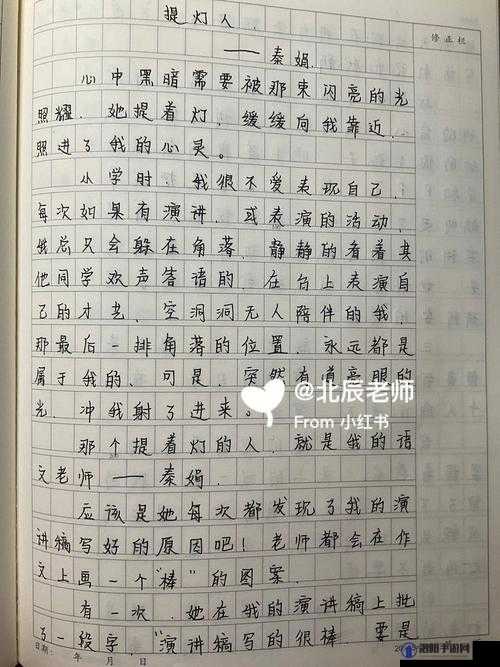 提灯人.
——秦娟.
修正栏
心中黑暗需要被那束闪亮的光
照耀. 她提着灯, 缓缓向我靠近,
照进了我的心灵。
小学时, 我很不爱表现自己,
每次如果有演讲, 或表演的活动,
我总只会躲在角落, 静静的看着其
他同学欢声笑语的, 在台上表演自
己的才艺, 空洞洞无人陪伴的我,
那最后一排角落的位置, 永远都是
属于我的, 可是, 突然有道亮眼的
光, 冲我射了进来。
那个提着灯的人, 就是我的语
文老师——秦娟。
应该是她每次都发现了我的演
讲稿写好的原因吧! 老师都会在作
文上画一个"棒"的图案.
有一次, 她在我的演讲稿上批
了一段字, "演讲稿写的很棒, 要是
@北辰老师
From 小红书
日期: 年 月 日
洛阳手游网